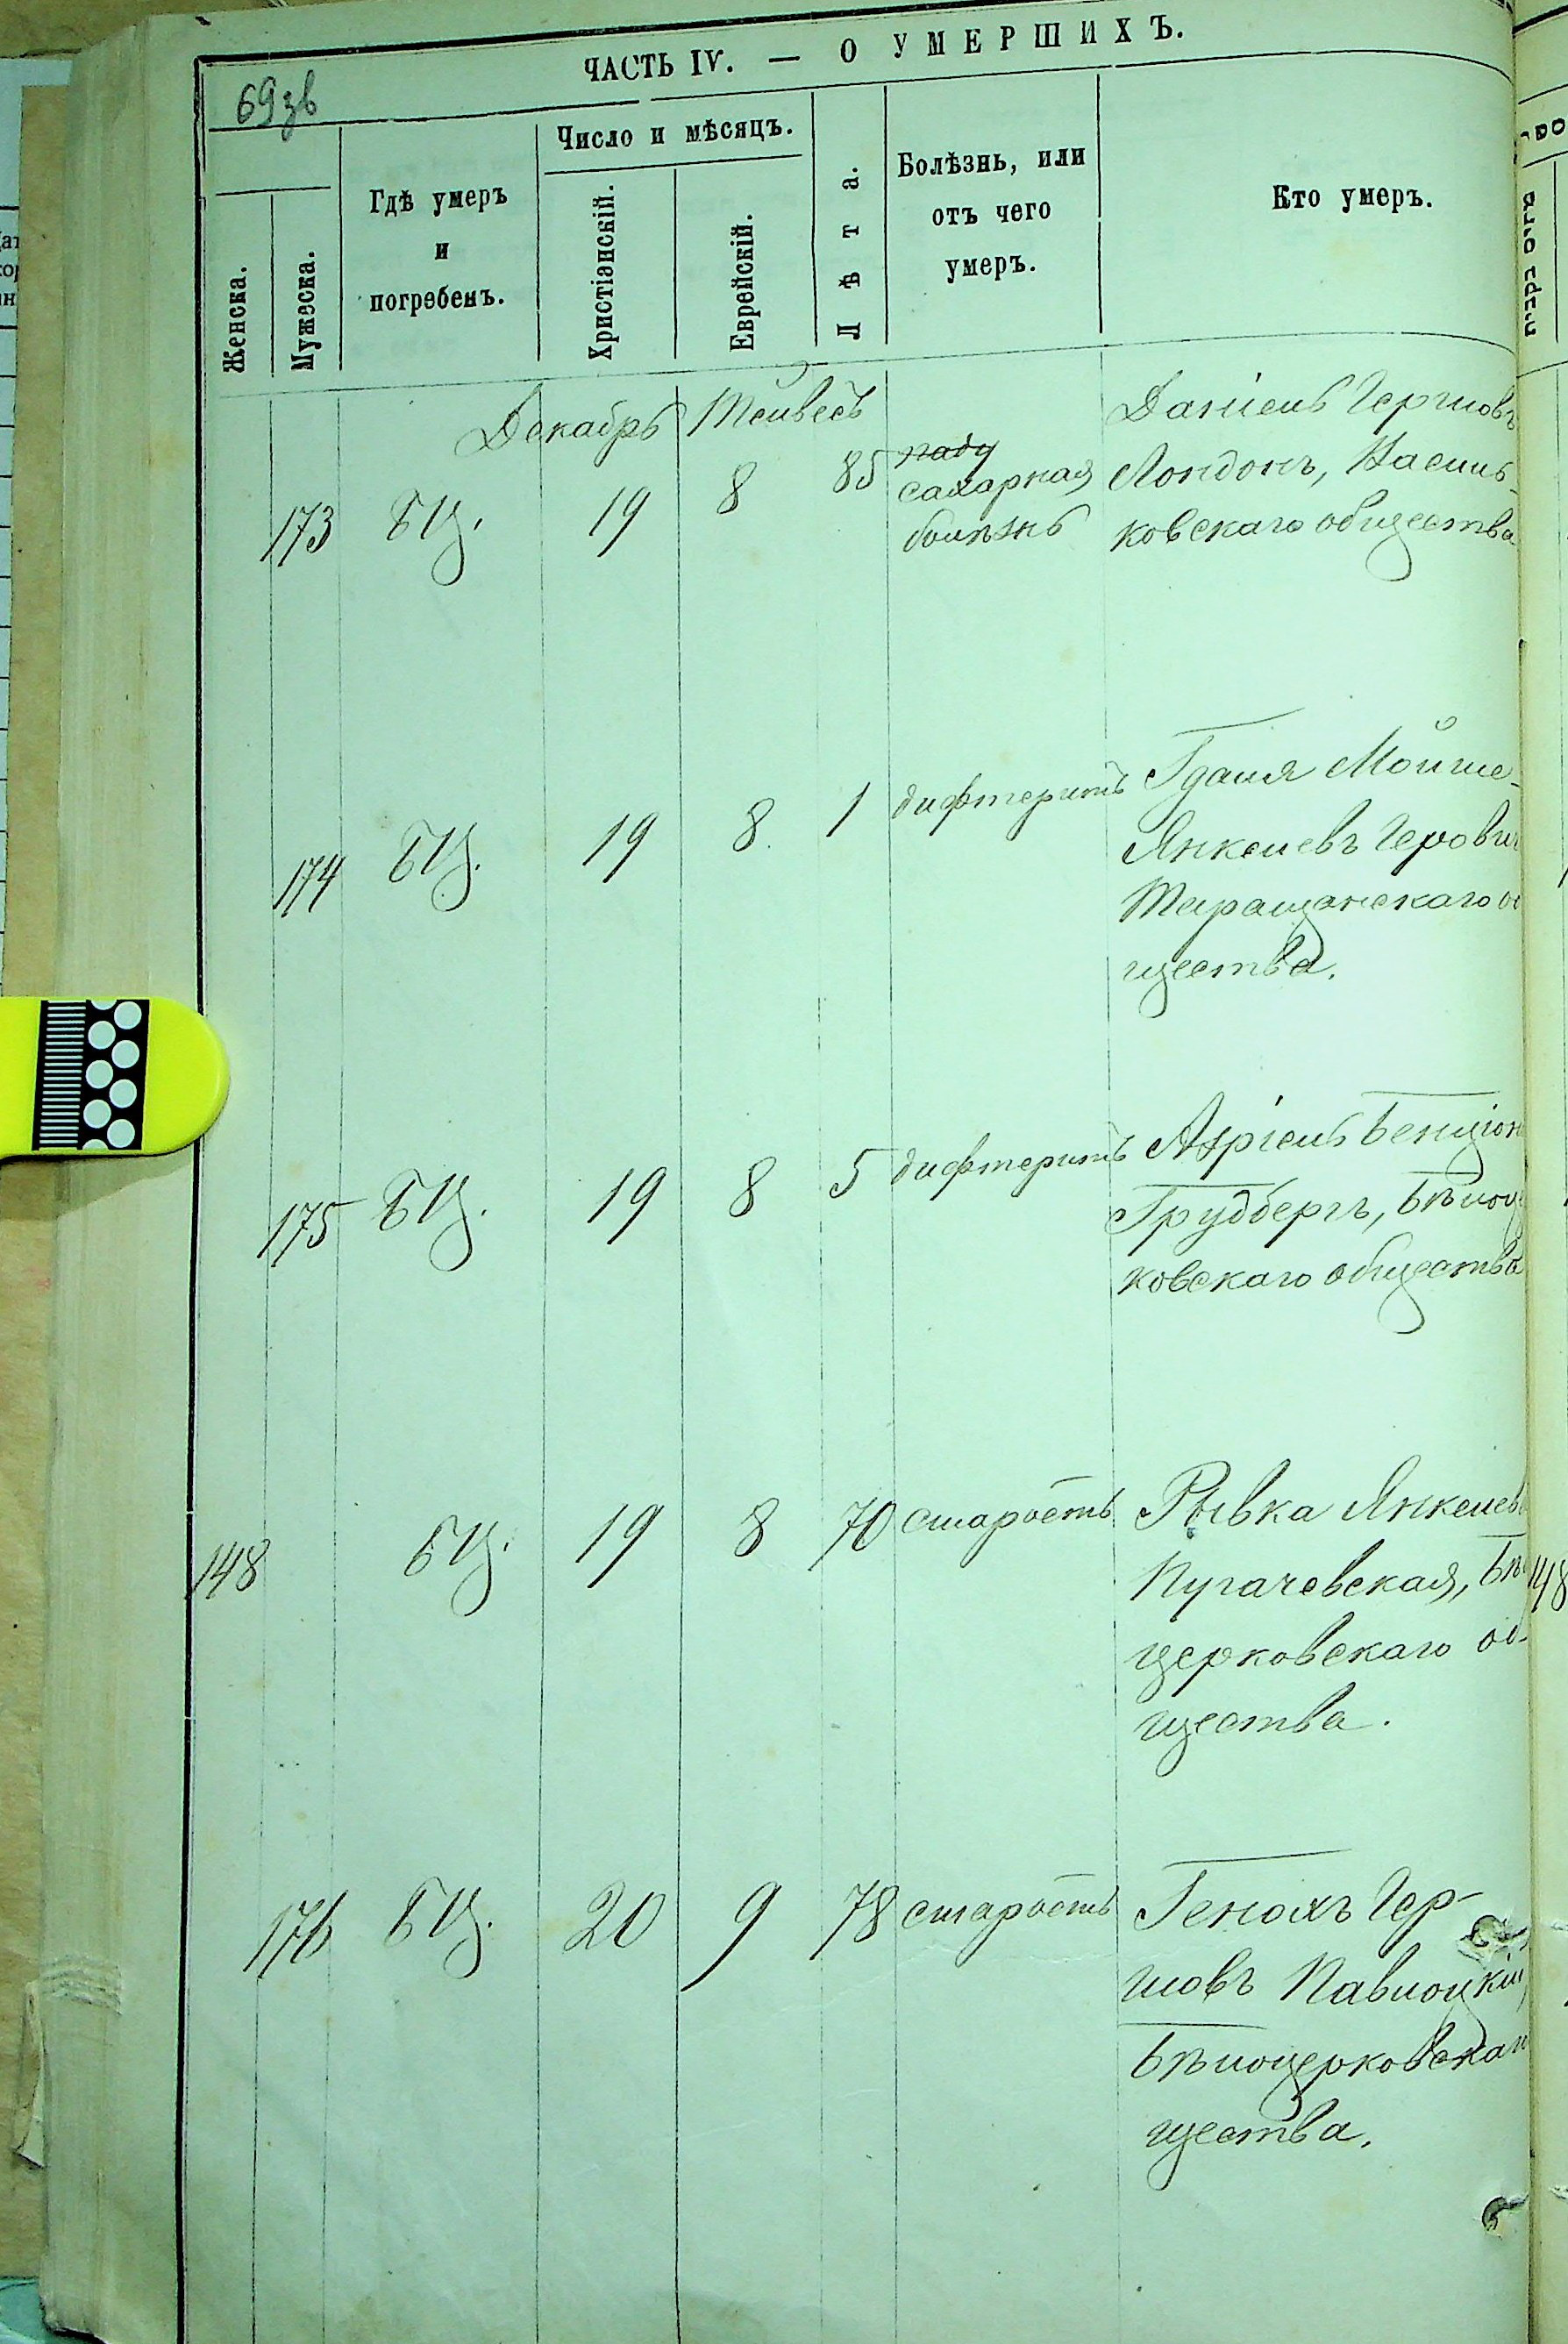 ЧАСТЬ IV. — О УМЕРШИХЪ.
69зв
Женска.
Мужеска.
Гдѣ умеръ
и
погребенъ.
Число и мѣсяцъ.
Христіанскій.
Еврейскій.
Лѣта.
Болѣзнь, или
отъ чего
умеръ.
Кто умеръ.
Декабрь Тейвесъ
173 БЦ. 19 8 85
сахарная
болѣзнь
Даніель Гершовъ
Лондонъ, Василь-
ковскаго общества
174 БЦ. 19 8 1 дифтеритъ
Гдаля Мойше-
Янкелевъ
Таращанскаго
щества.
175 БЦ. 19 8 5 дифтеритъ
Азріель Бенціон
Грудбергъ, Бѣлоц
ковскаго общества
148 БЦ. 19 8 70 старость
Рывка Янкелев
Пугачевская, Бѣ
церковскаго об-
щества.
176 БЦ. 20 9 78 старость
Генохъ Гер-
шовъ Павлоцкій,
Бѣлоцерковскаго
щества.
148